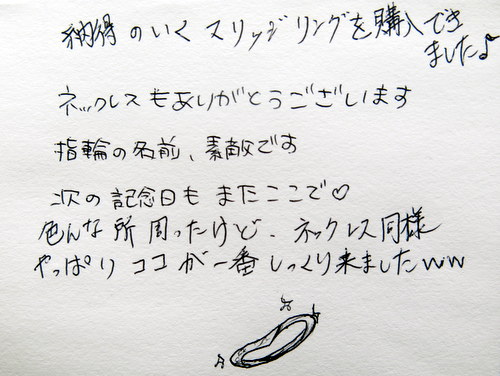 納得のいくスリッジリングを購入でき
ました♪
ネックレスもありがとうございます
指輪の名前、素敵です
次の記念日もまたここで♡
色んな所周ったけど、ネックレス同様
やっぱりココが一番しっくり来ましたww